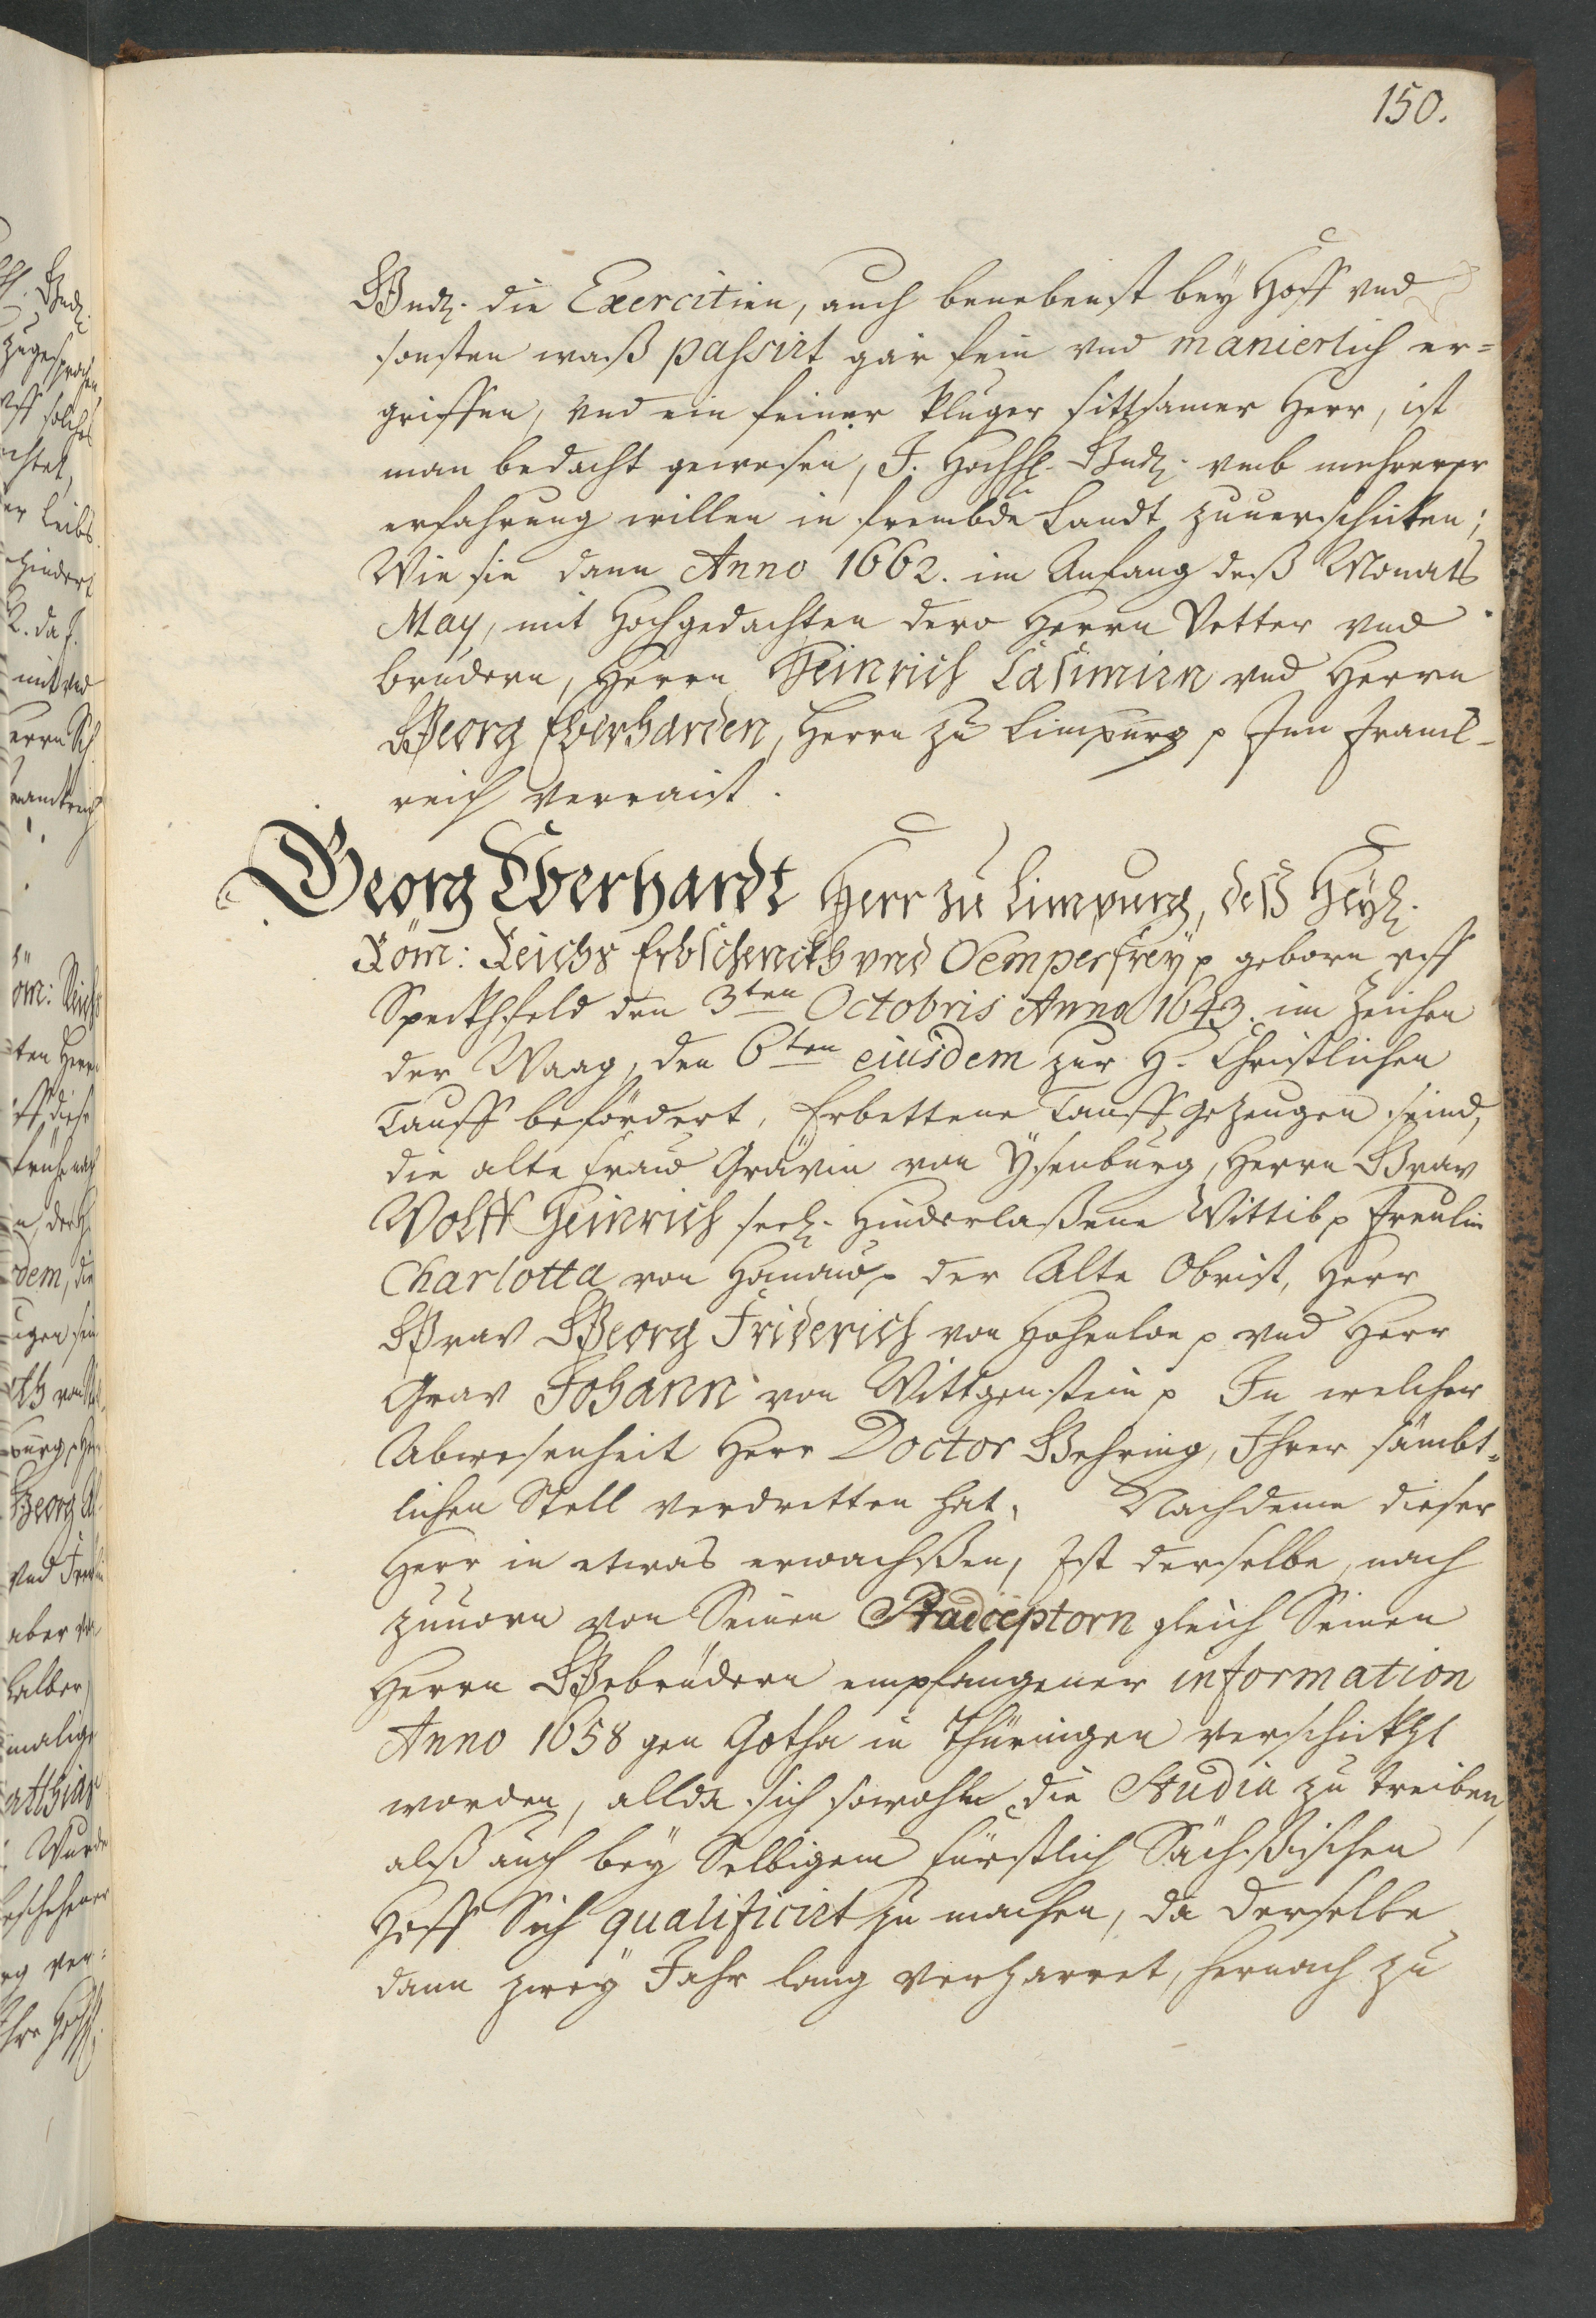 150.
Gndl. die Exercitien, auch benebenst bey Hoff vnd
sonsten waß passirt gar fein vnd manierlich er=
griffen, vnd ein feiner kluger sittsamer Herr, ist
man bedacht gewesen, J. Hochfl. Gndl. vmb mehrerer
erfahrung willen in frembde Landt zuuerschicken;
Wie sie dann Anno 1662. im Anfang deß Monats
May, mit Hochgedachten dero Herrn Vetter vnd
brudern, Herrn Heinrich Casimirn vnd Herrn
Georg Eberharden, Herrn zu Limpurg p Inn Franck-
reich verraist.
Georg Eberhardt Herr zu Limpurg, deß Heyl.
Röm: Reichs Erbschenckh vnd Semperfrey p geborn vff
Speckhfeld den 3ten Octobris Anno 1643. im Zeichen
der Waag, den 6ten eiusdem zur H. Christlichen
Tauff befördert, Erbettene Tauff gezeugen seind,
die alte Fraw Grävin von Ysenburg, Herrn Grav
Wolff Heinrich seel. Hinderlaßene Wittib p Freulin
Charlotta von Hanaw p der Alte Obrist, Herr
Grav Georg Friderich von Hohenloe p vnd Herr
Grav Johann von Wittgenstein p In welcher
Abwesenheit Herr Doctor Gehring, Ihrer sämbt=
lichen Stell verdretten hat, Nachdeme dieser
Herr in etwas erwachßen, Ist derselbe, nach
zuuorn von Seinen Præceptorn gleich Seinen
Herrn Gebrüdern empfangener information
Anno 1658 gen Gotha in Thüringen verschickht
worden, allda sich sowohln die Studia zu treiben,
alß auch bey Selbigem Fürstlich Sächßischen
Hoff Sich qualificirt zu machen, da derselbe
dann zwey Jahr lang verharret, hernach zu